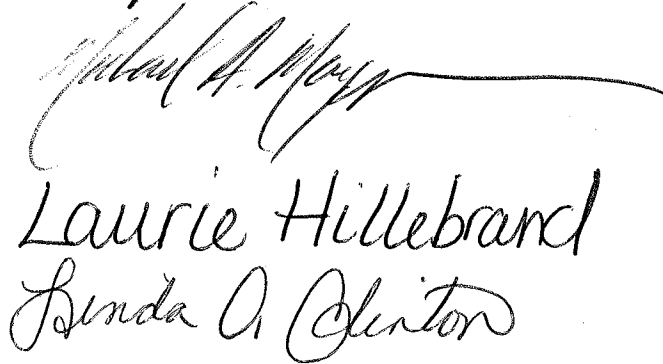 Michael A. Mayr
Laurie Hillebrand
Linda A. Clinton